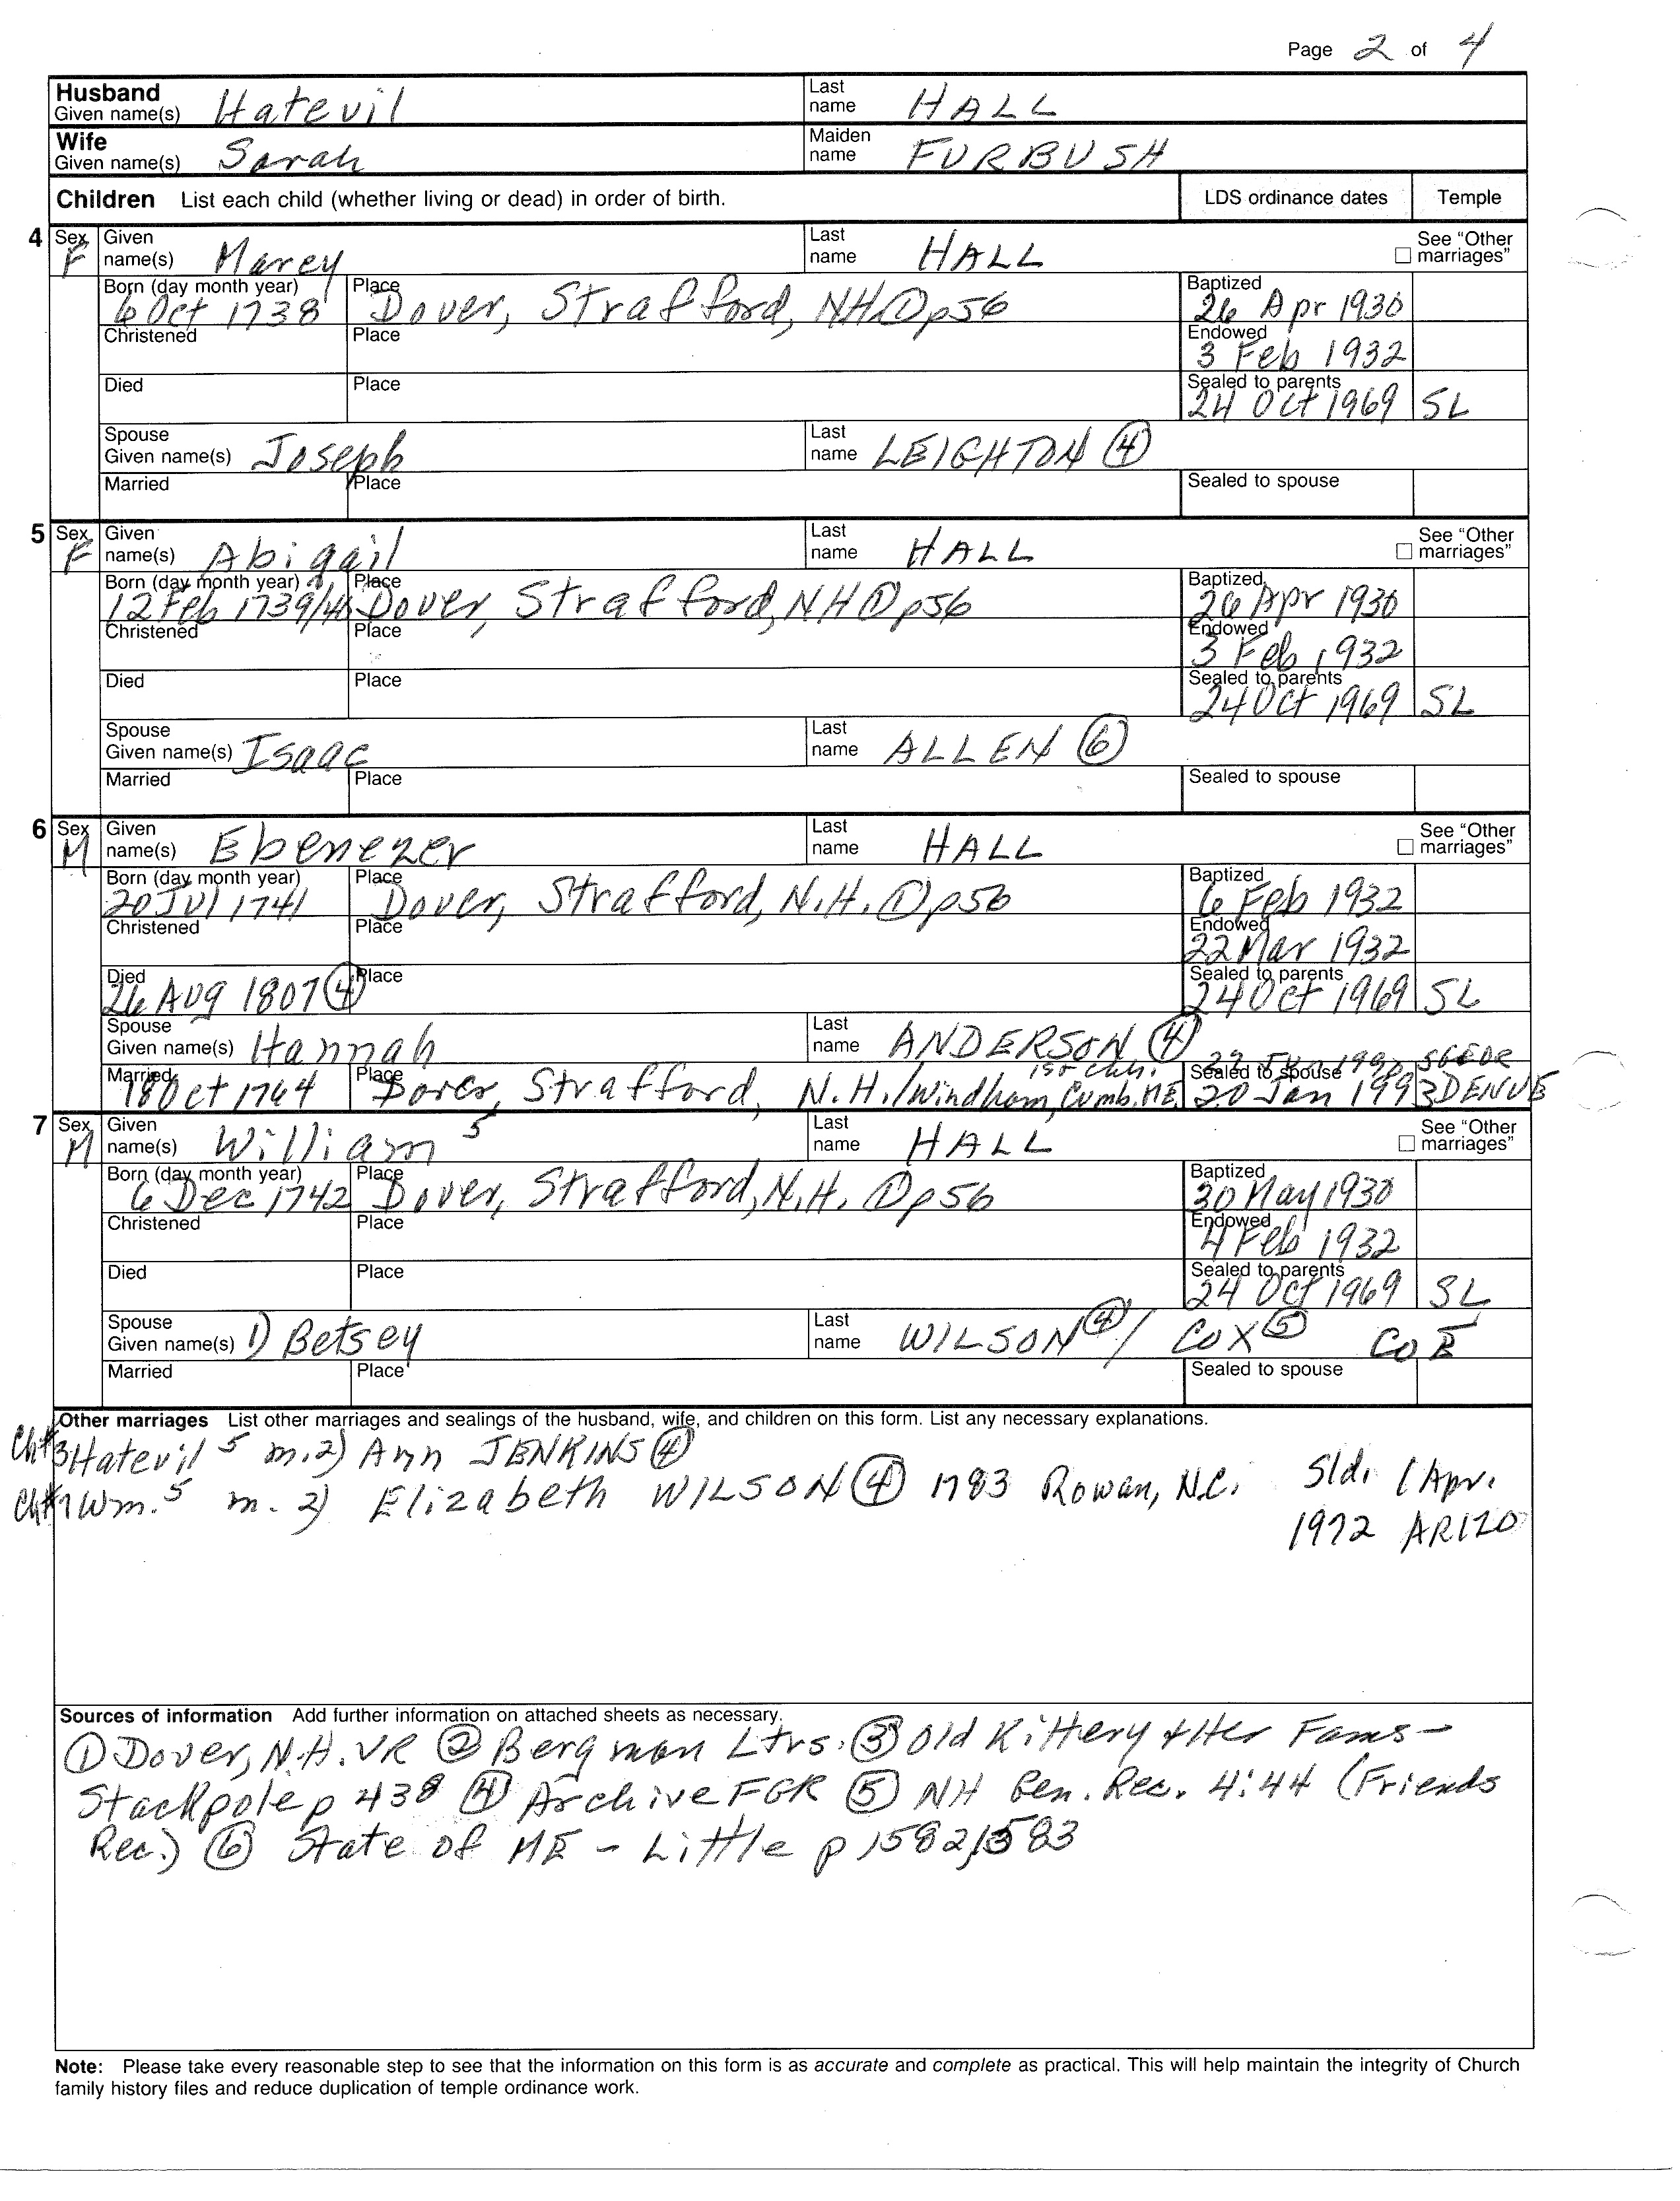 Page 2 of 4
Husband Given name(s) Hatevil Last name HALL
Wife Given name(s) Sarah Maiden name FURBUSH
Children List each child (whether living or dead) in order of birth. LDS ordinance dates Temple
4 Sex F Given name(s) Marey Last name HALL See "Other marriages"
Born (day month year) 6 Oct 1738 Place Dover, Strafford, NH ① p56 Baptized 26 Apr 1930
Christened Place Endowed 3 Feb 1932
Died Place Sealed to parents 24 Oct 1969 SL
Spouse Given name(s) Joseph Last name LEIGHTON ④
Married Place Sealed to spouse
5 Sex F Given name(s) Abigail Last name HALL See "Other marriages"
Born (day month year) 12 Feb 1739/40 Place Dover, Strafford, NH ① p56 Baptized 26 Apr 1930
Christened Place Endowed 3 Feb 1932
Died Place Sealed to parents 24 Oct 1969 SL
Spouse Given name(s) Isaac Last name ALLEN ⑥
Married Place Sealed to spouse
6 Sex M Given name(s) Ebenezer Last name HALL See "Other marriages"
Born (day month year) 20 Jul 1741 Place Dover, Strafford, N.H. ① p56 Baptized 6 Feb 1932
Christened Place Endowed 22 Mar 1932
Died 26 AUG 1807 ④ Place Sealed to parents 24 Oct 1969 SL
Spouse Given name(s) Hannah Last name ANDERSON ④
Married 18 Oct 1764 Place Dover, Strafford, N.H./Windham, Cumb. ME Sealed to spouse 20 Jan 1993 DENVE
7 Sex M Given name(s) William 5 Last name HALL See "Other marriages"
Born (day month year) 6 Dec 1742 Place Dover, Strafford, N.H. ① p56 Baptized 30 May 1930
Christened Place Endowed 4 Feb 1932
Died Place Sealed to parents 24 Oct 1969 SL
Spouse Given name(s) 1) Betsey Last name WILSON ④ / COX ⑤
Married Place Sealed to spouse
Other marriages List other marriages and sealings of the husband, wife, and children on this form. List any necessary explanations.
Ch#3 Hatevil 5 m. 2) Ann JENKINS ④
Ch#7 Wm. 5 m. 2) Elizabeth WILSON ④ 1783 Rowan, N.C. Sld. 1 Apr.
1972 ARIZO
Sources of information Add further information on attached sheets as necessary.
① Dover, N.H. VR ② Bergman Ltrs. ③ Old Kittery & Her Fams-
Stackpole p 438 ④ Archive FGR ⑤ NH Gen. Rec. 4:44 (Friends
Rec.) ⑥ State of ME - Little p 1582, 1583
Note: Please take every reasonable step to see that the information on this form is as accurate and complete as practical. This will help maintain the integrity of Church
family history files and reduce duplication of temple ordinance work.